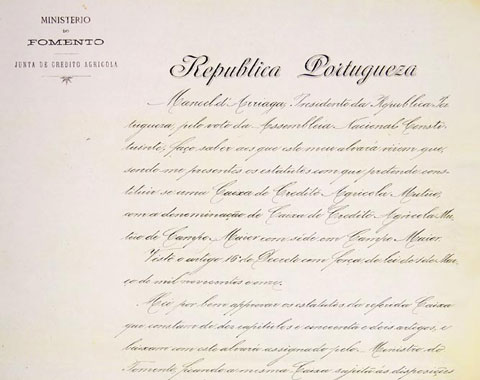 MINISTERIO
DO
FOMENTO
JUNTA DE CREDITO AGRICOLA
Republica Portugueza
Manuel d'Arriaga, Presidente da Republica Por-
tugueza, pelo voto da Assembleia Nacional Consti-
tuinte, faço saber aos que este meu alvará virem que,
sendo-me presentes os estatutos com que pretende cons-
tituir-se uma Caixa de Credito Agricola Mutuo,
com a denominação de Caixa de Credito Agricola Mu-
tuo de Campo Maior com séde em Campo Maior.
Visto o artigo 16º do Decreto com força de lei de 1 de Mar-
ço de mil novecentos e onze.
Hei por bem approvar os estatutos da referida Caixa
que constam de dez capitulos e cincoenta e dois artigos, e
baixam com este alvará assignado pelo Ministro do
Fomento, ficando a mesma Caixa sujeita ás disposições